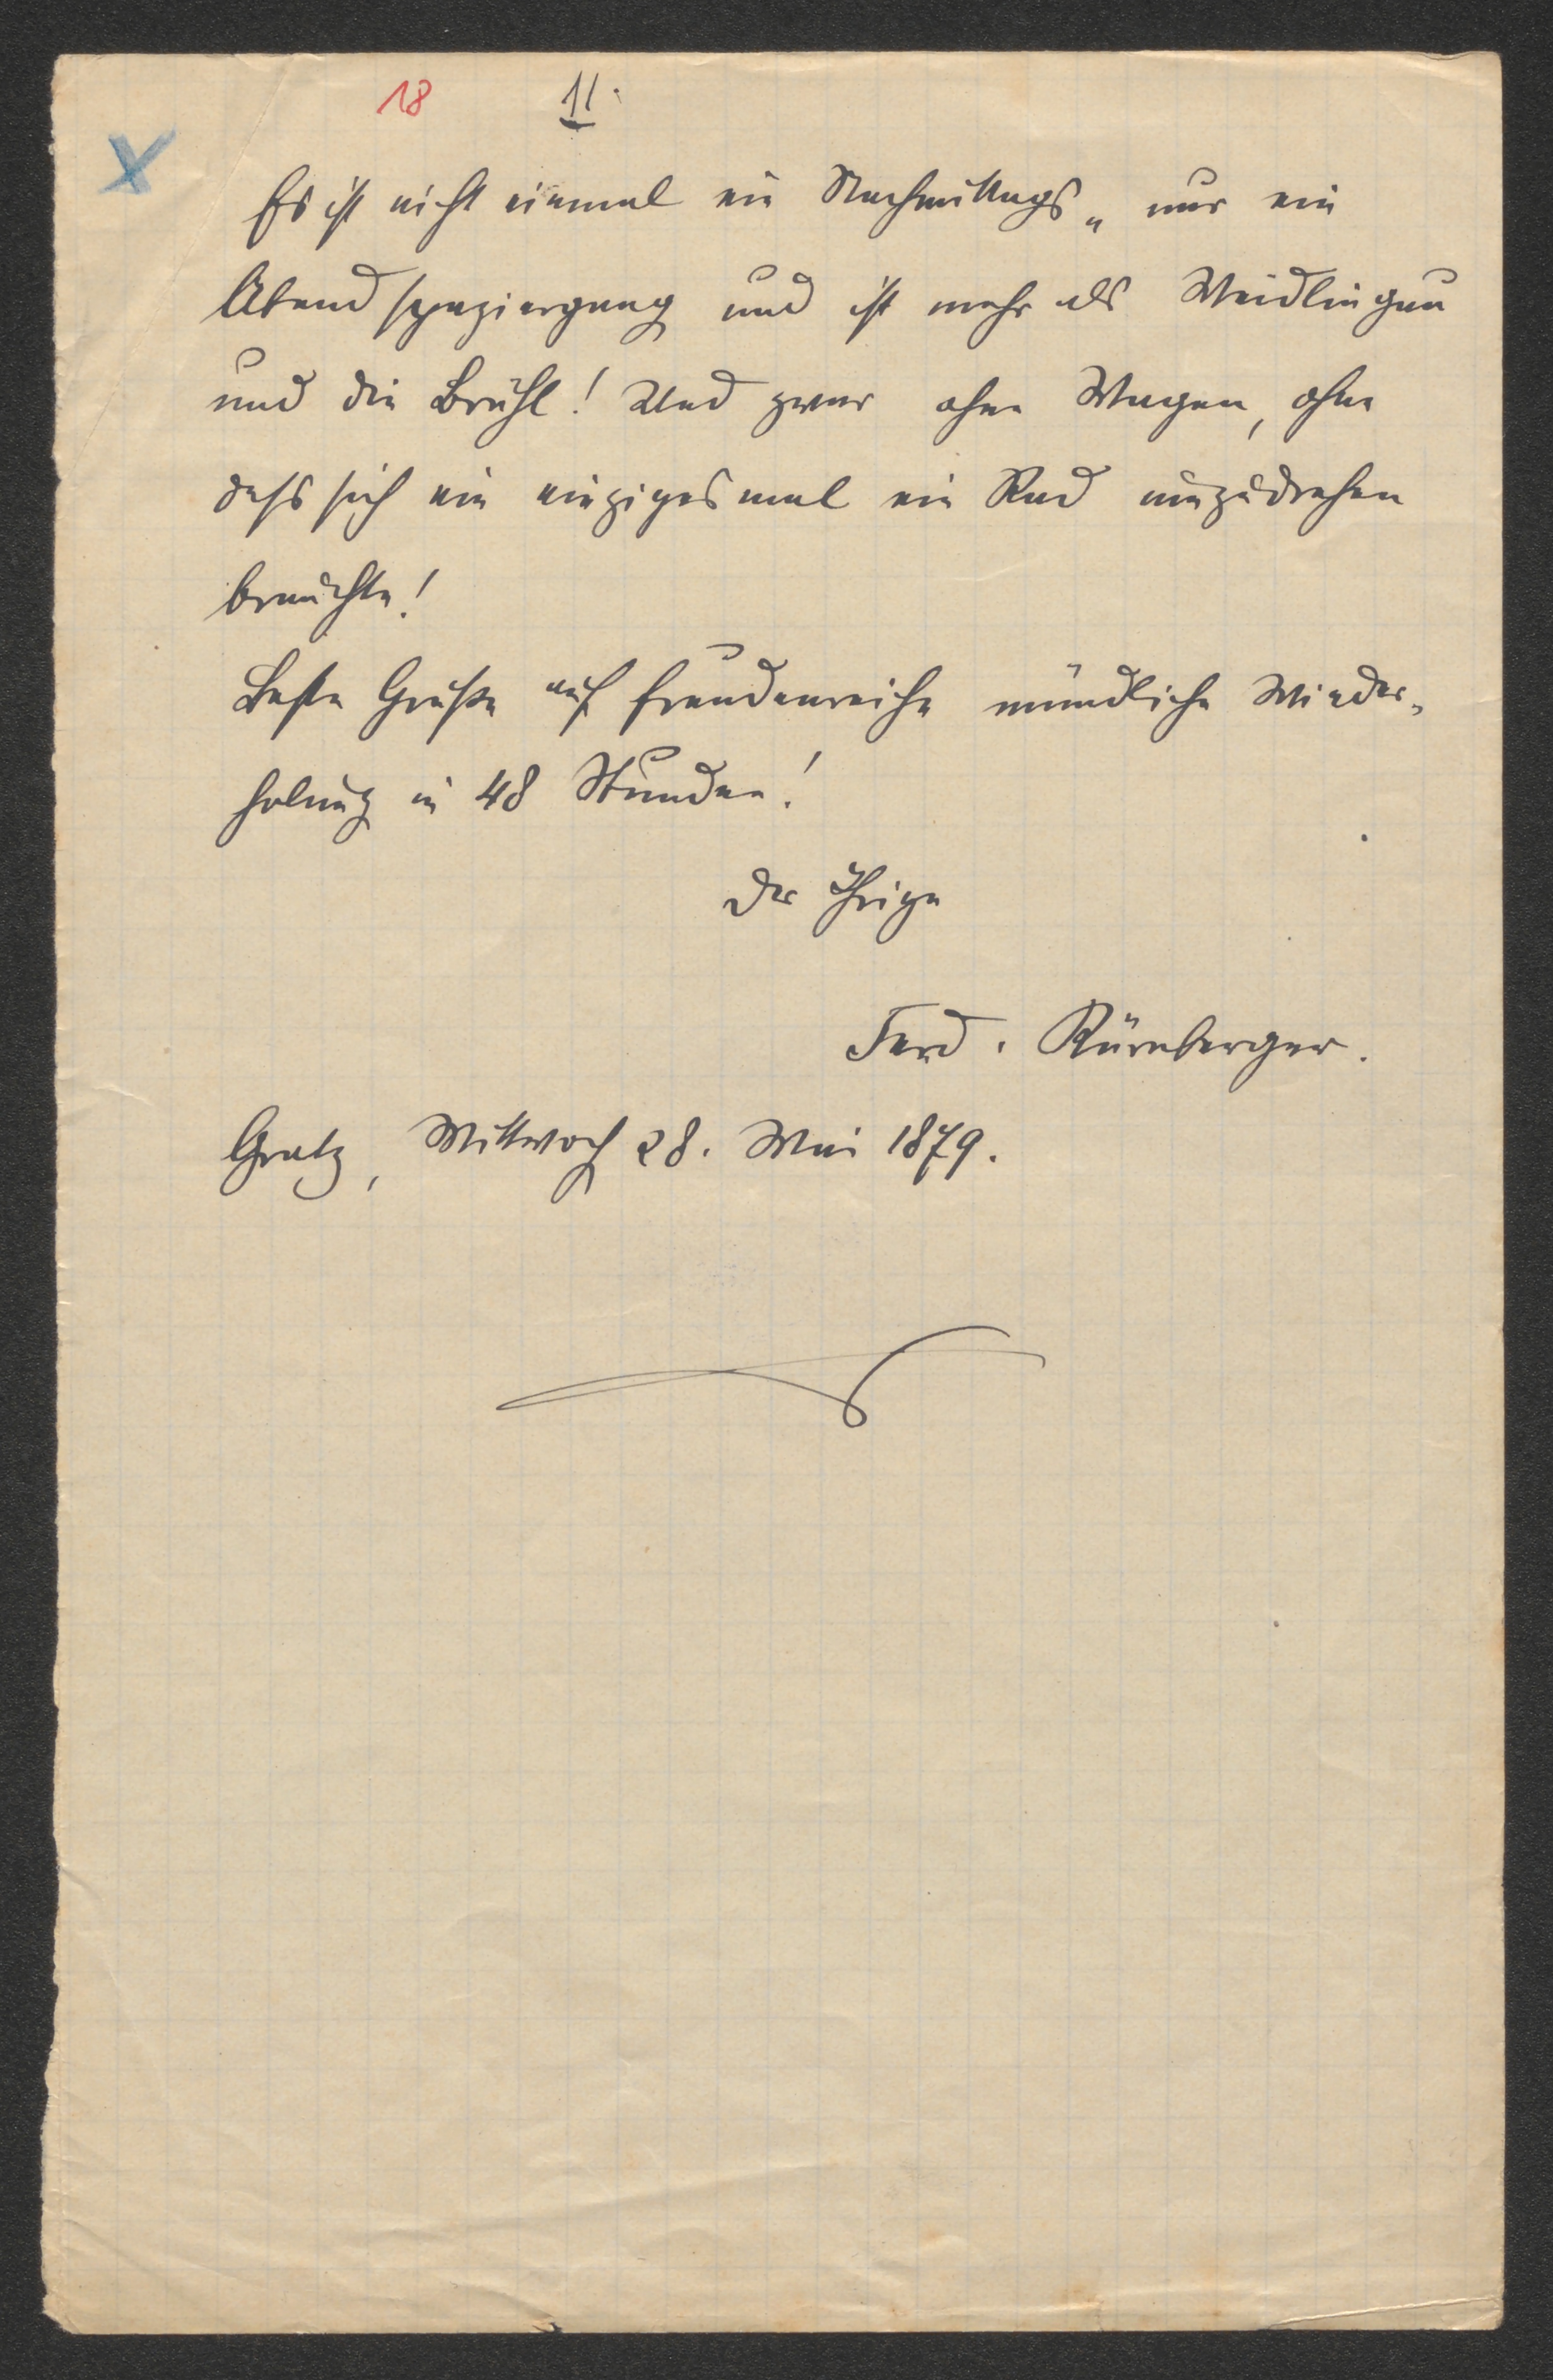 18 11.
X
Es ist nicht einmal ein Nachmittags- nur ein
Abendspaziergang und ist mehr als Weidlingau
und die Brühl! Und zwar ohne Wagen, ohne
dass sich ein einzigesmal ein Rad umzudrehen
brauchte!
Beste Grüße auf freudenreiche mündliche Wieder-
holung in 48 Stunden!
Der Ihrige
Ferd. Kürnberger.
Gratz, Mittwoch 28. Mai 1879.